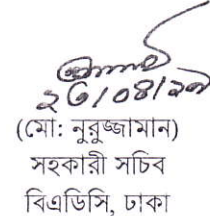 ২৩/০৪/২৭
(মো: নুরুজ্জামান)
সহকারী সচিব
বিএডিসি, ঢাকা